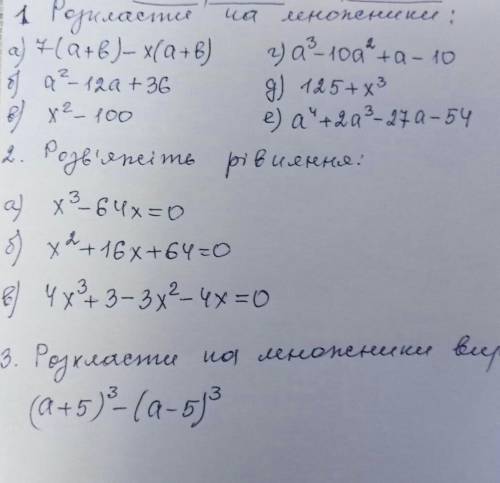 1. Розкласти на множники:
а) 7(a+b)-x(a+b) г) a³-10a²+a-10
б) a²-12a+36 д) 125+x³
в) x²-100 е) a⁴+2a³-27a-54
2. Розв'яжіть рівняння:
а) x³-64x=0
б) x²+16x+64=0
в) 4x³+3-3x²-4x=0
3. Розкласти на множники вир
(a+5)³-(a-5)³